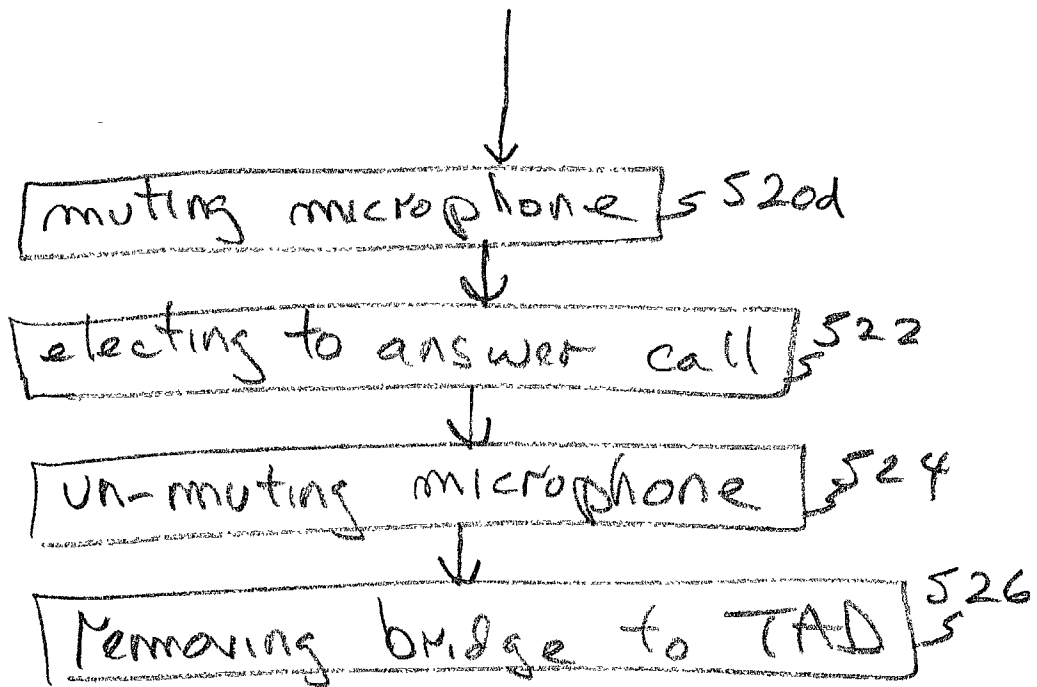 muting microphone 520d
electing to answer call 522
un-muting microphone 524
removing bridge to TAD 526